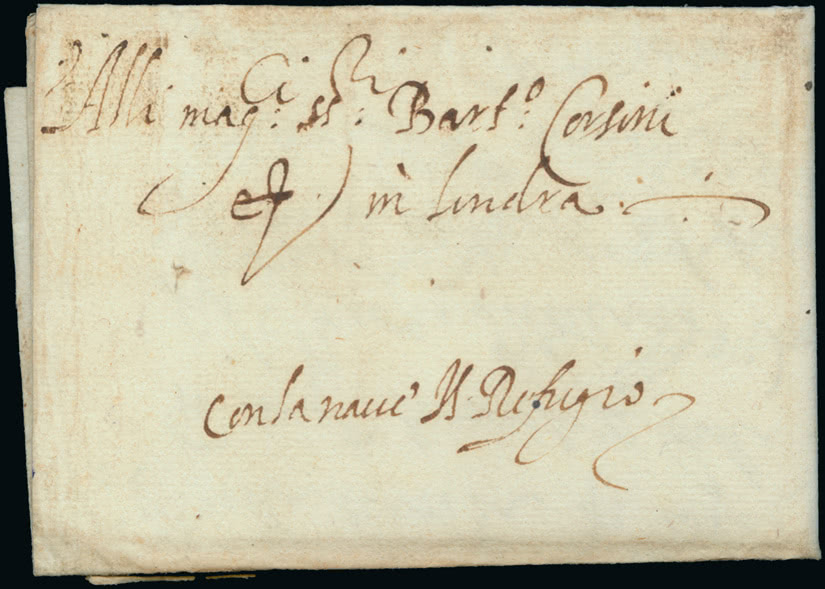 Alli mag.ci ss.ri Bart.o Corsini
in londra
con la nave Il Refugio